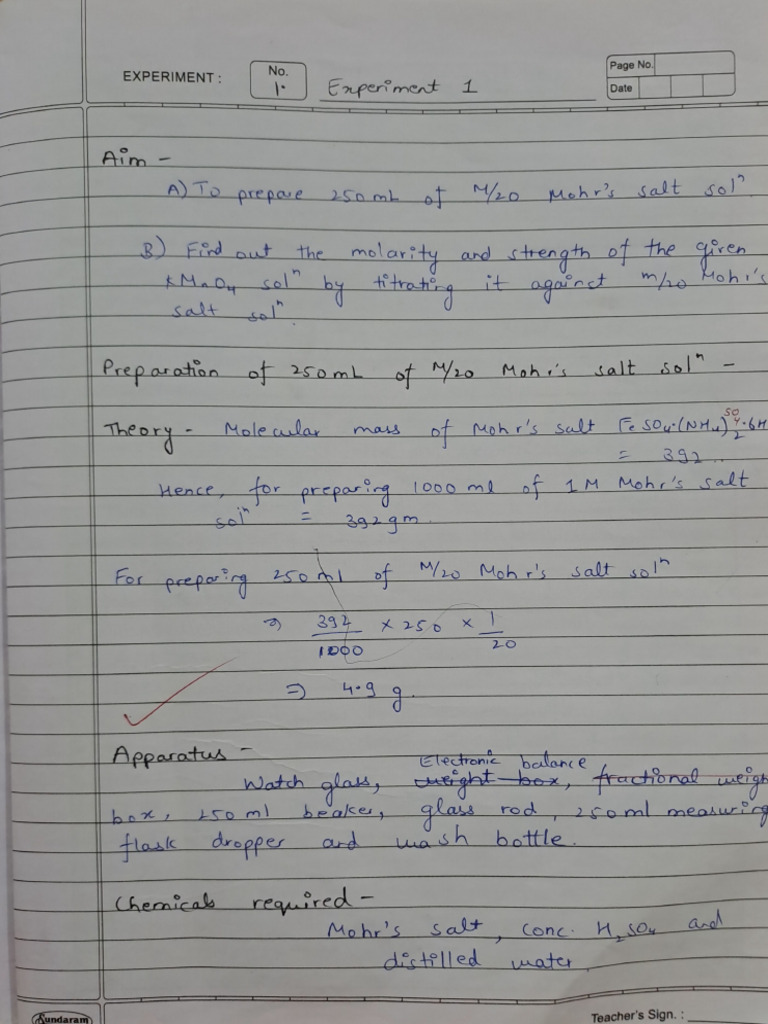 EXPERIMENT :
No.
1.
Experiment 1
Page No.
Date
Aim -
A) To prepare 250 mL of M/20 Mohr's salt solⁿ
B) Find out the molarity and strength of the given
KMnO4 solⁿ by titrating it against m/20 Mohr's
salt solⁿ.
Preparation of 250mL of M/20 Mohr's salt solⁿ -
Theory - Molecular mass of Mohr's salt FeSO4·(NH4)2SO4·6H
= 392..
Hence, for preparing 1000 ml of 1M Mohr's salt
solⁿ = 392 gm.
For preparing 250 ml of M/20 Mohr's salt solⁿ
⇒ 392/1000 × 250 × 1/20
⇒ 4.9 g.
Apparatus -
Electronic balance
Watch glass, weight box, fractional weigh
box, 250 ml beaker, glass rod, 250 ml measuring
flask dropper and wash bottle.
Chemicals required -
Mohr's salt, conc. H2SO4 and
distilled water
Sundaram
Teacher's Sign. :